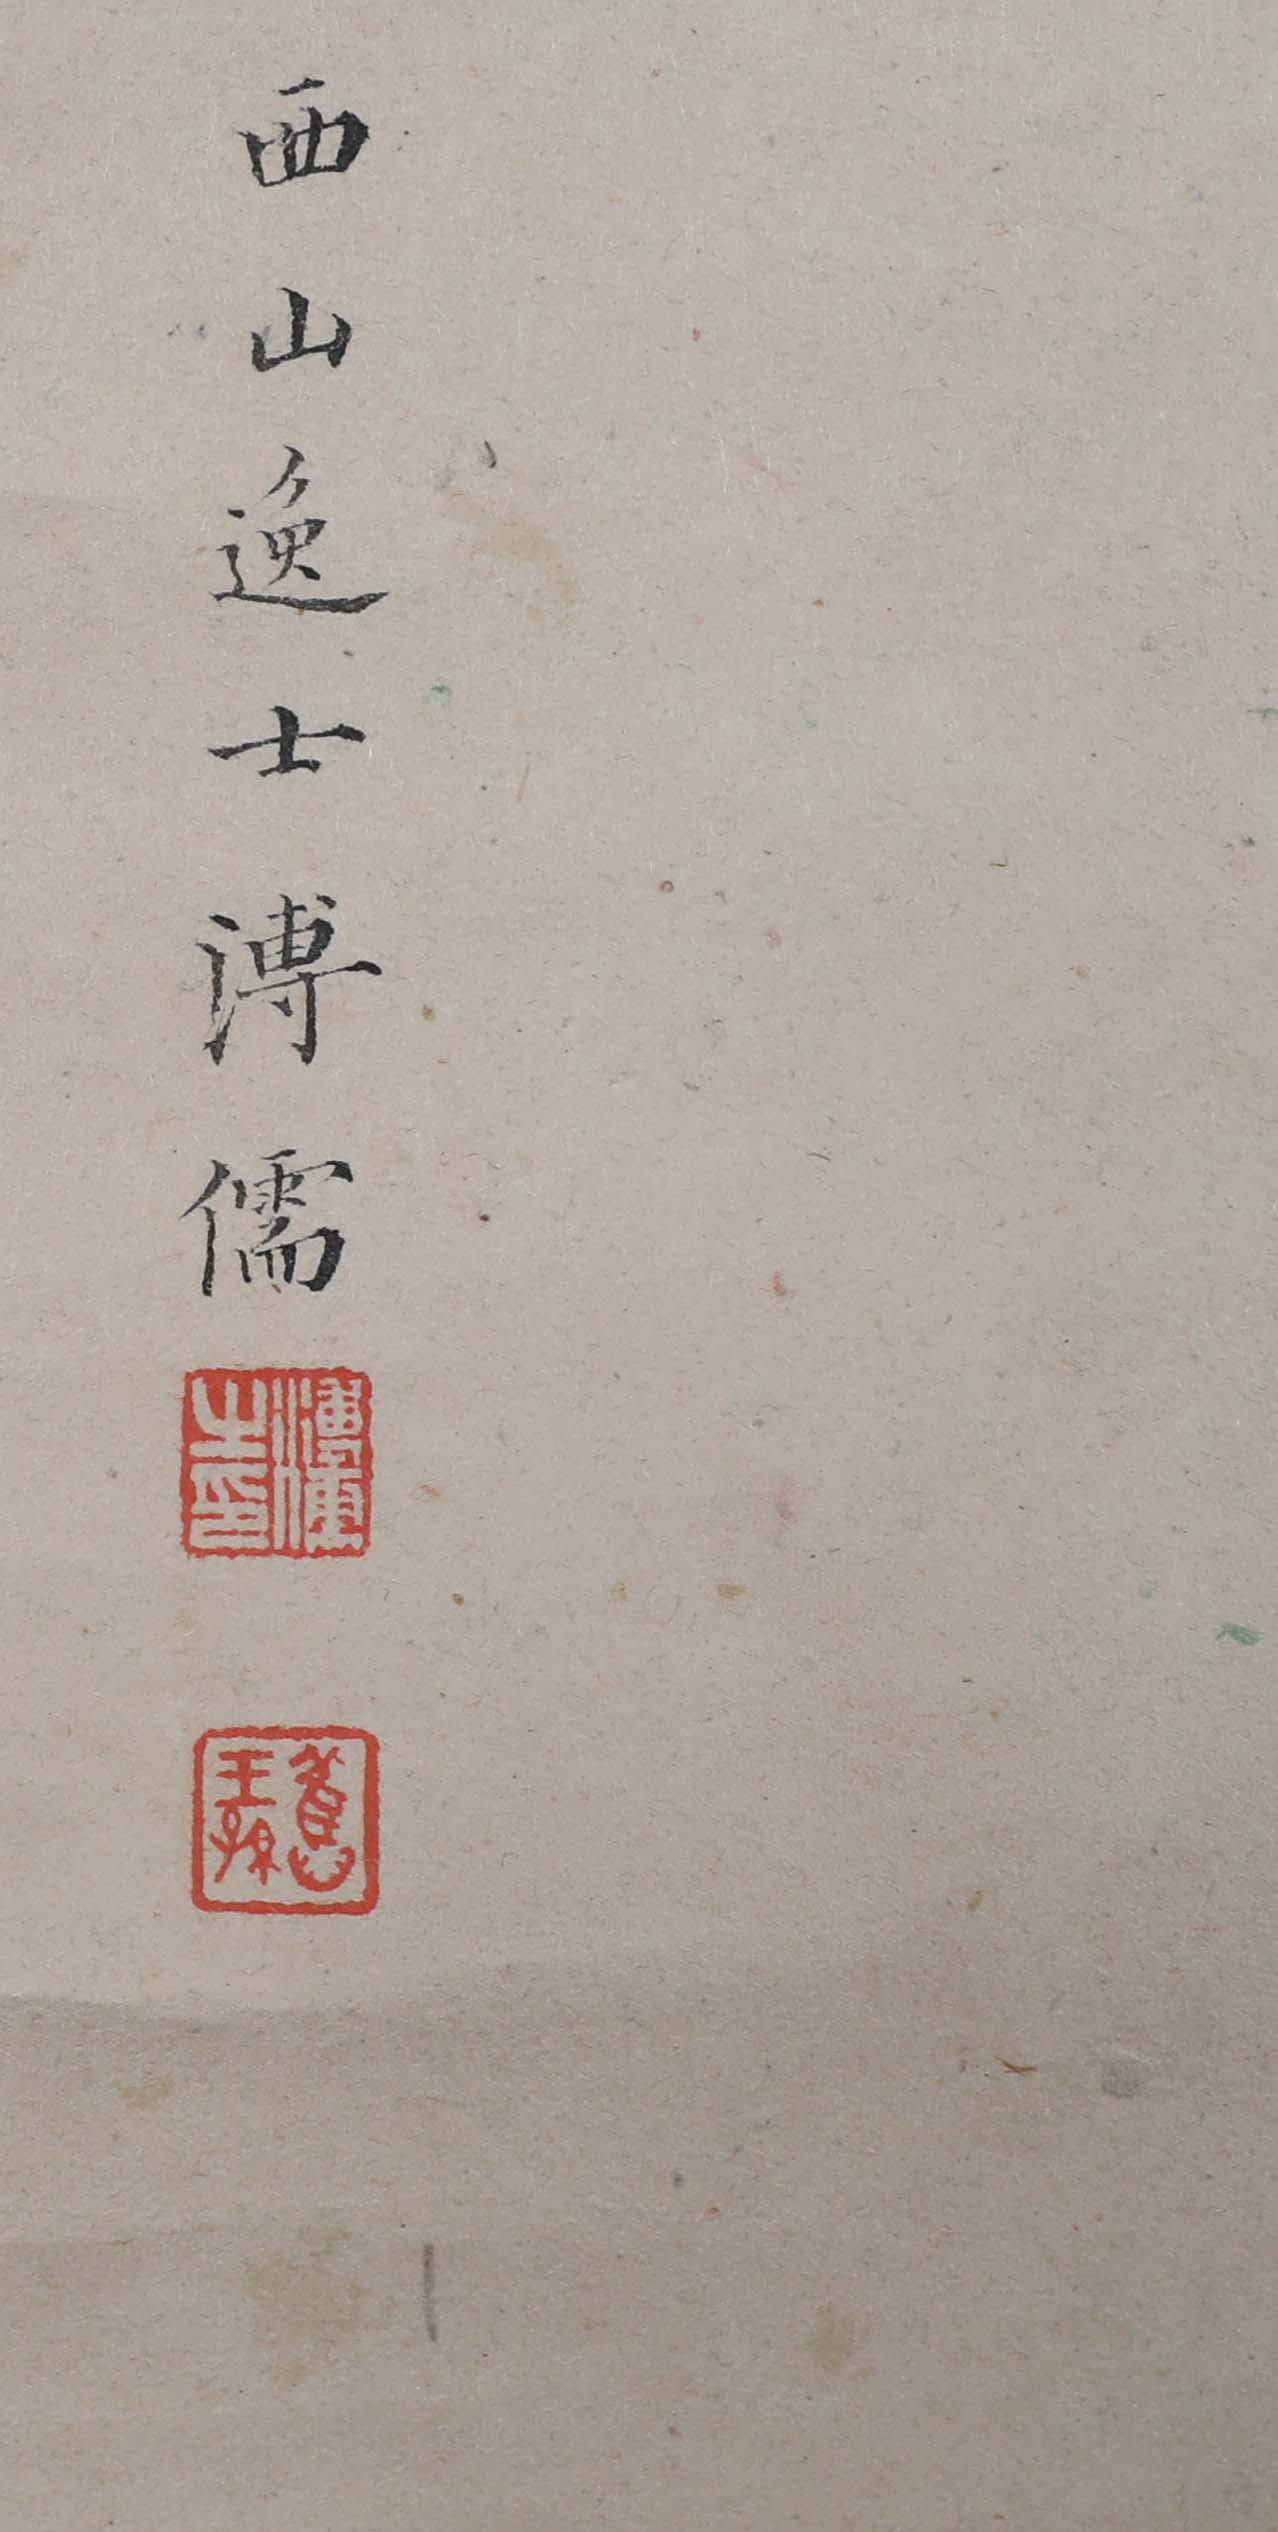 西山逸士溥儒
溥儒之印
舊王孫